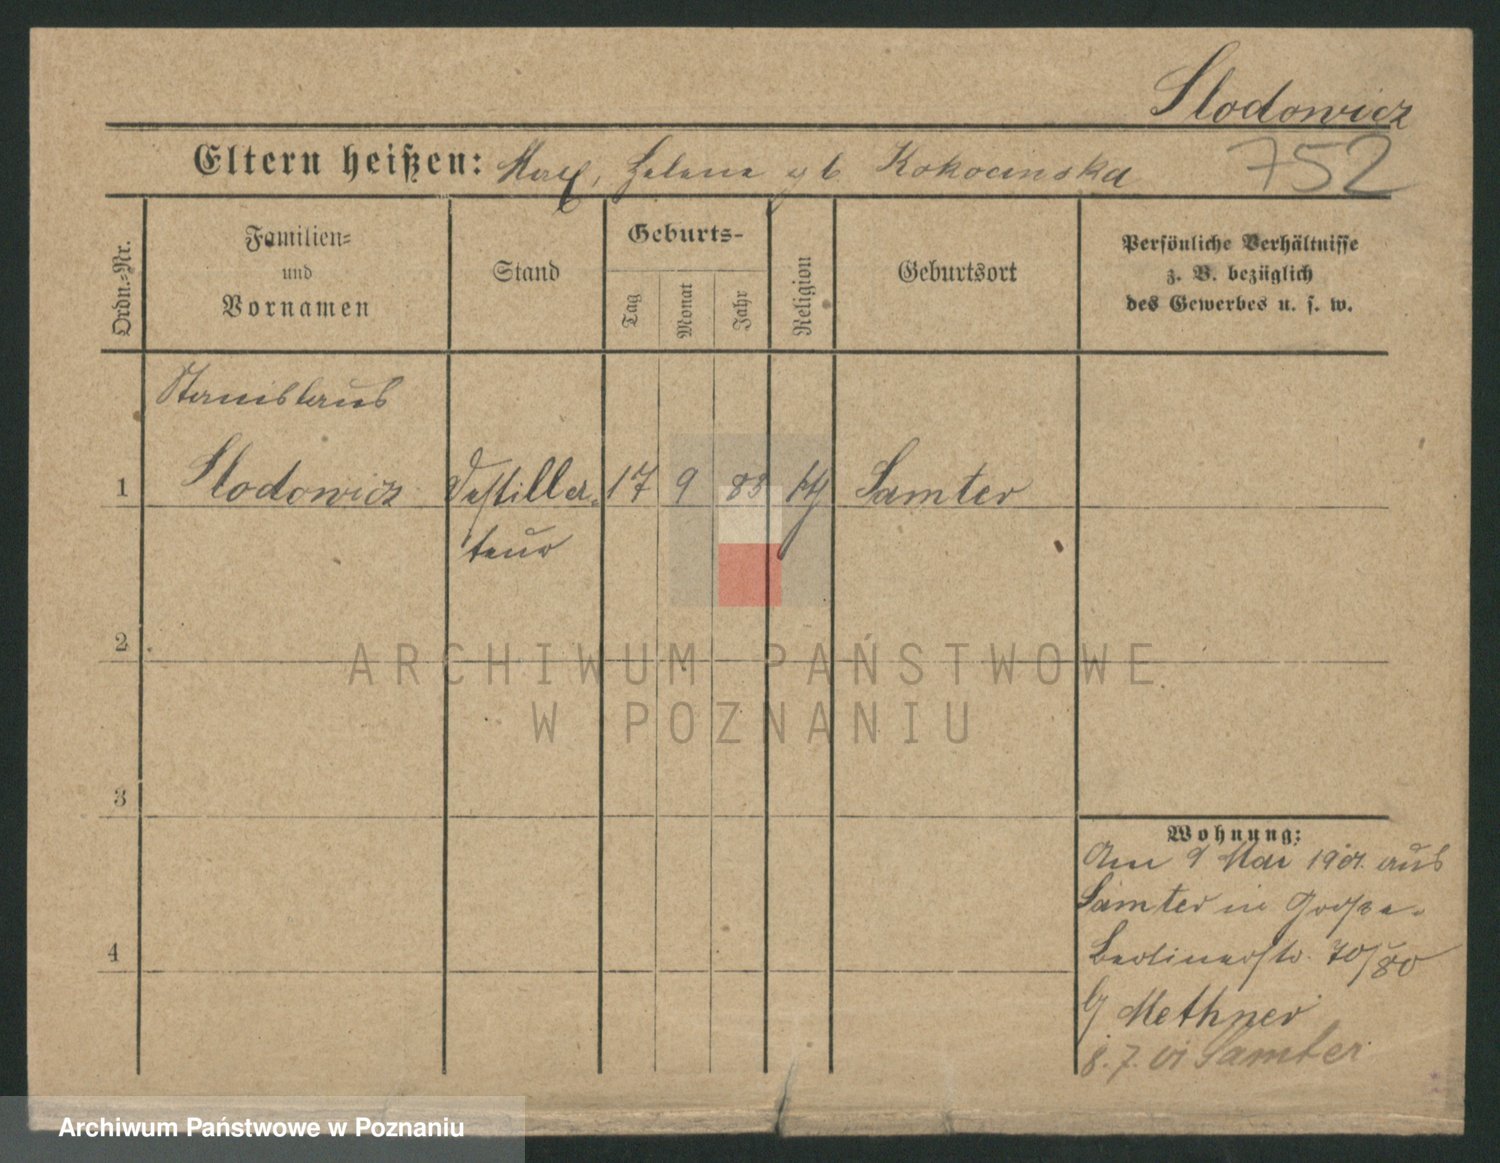 Slodowicz
Eltern heißen: Max, Helene gb Kokocinska
752
Ordn.-Nr.
Familien-
und
Vornamen
Stand
Geburts-
Tag
Monat
Jahr
Religion
Geburtsort
Persönliche Verhältnisse
z. B. bezüglich
des Gewerbes u. s. w.
Stanislaus
1 Slodowicz Destilla- 17 9 83 kth Samter
teur
2
ARCHIWUM PAŃSTWOWE
W POZNANIU
3
Wohnung:
Am 9 Mai 1901. aus
Samter in Große-
Berlinerstr. 70/80
4
b/ Methner
8.7.01 Samter
Archiwum Państwowe w Poznaniu